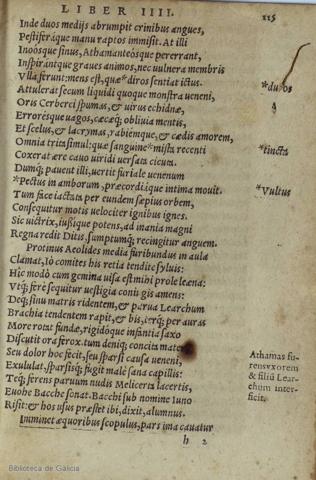 LIBER IIII.
115
Inde duos medijs abrumpit crinibus angues,
Pestiferáque manu raptos immisit. At illi
Inoosque sinus, Athamanteósque pererrant,
Inspirántque graues animos, nec uulnera membris
Vlla ferunt: mens est, quæ *diros sentiat ictus.
*duros
Attulerat secum liquidi quoque monstra ueneni,
Oris Cerberei spumas, & uirus echidnæ,
Erroresque uagos, cæcæq; obliuia mentis,
Et scelus, & lacrymas, rabiemque, & cædis amorem,
Omnia trita simul: quæ sanguine *mista recenti
*tincta
Coxerat ære cauo uiridi uersata cicuta.
Dumq; pauent illi, uertit furiale uenenum
*Pectus in amborum, præcordiáque intima mouit.
*Vultus
Tum face iactata per eundem sæpius orbem,
Consequitur motis uelociter ignibus ignes.
Sic uictrix, iussique potens, ad inania magni
Regna redit Ditis, sumptumq; recingitur anguem.
Protinus Aeolides media furibundus in aula
Clamat, Iô comites his retia tendite syluis:
Hic modò cum gemina uisa est mihi prole leæna:
Vtq; feræ sequitur uestigia coniugis amens:
Deq; sinu matris ridentem, & parua Learchum
Brachia tendentem rapit, & bis, terq; per auras
More rotat fundæ, rigidóque infantia saxo
Discutit ora ferox. tum deniq; concita mater
Seu dolor hoc fecit, seu sparsi causa ueneni,
Exululat, sparsisq; fugit malè sana capillis:
Teq; ferens paruum nudis Melicerta lacertis,
Euohe Bacche sonat. Bacchi sub nomine Iuno
Risit: & hos usus præstet tibi, dixit, alumnus.
Imminet æquoribus scopulus, pars ima cauatur
Athamas fu-
rens vxorem
& filiũ Lear-
chum inter-
ficit.
h 2
Biblioteca de Galicia